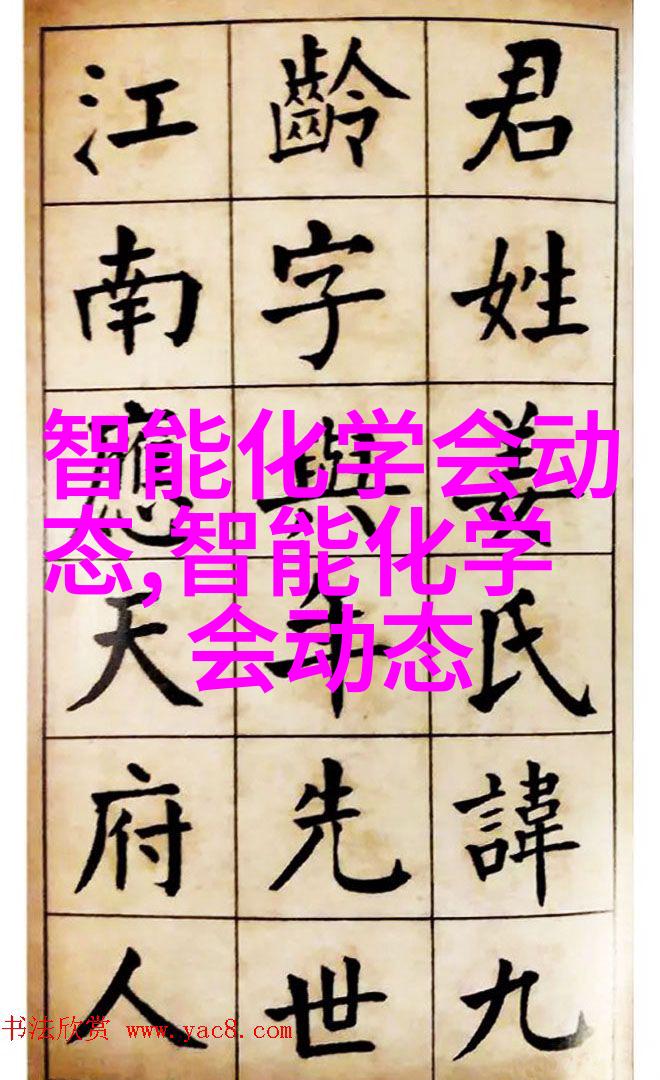 君姓姜氏諱九
齡字與年先世
江南應天府人
智能化学会动
态,智能化学
会动态
书法欣赏 www.yac8.com